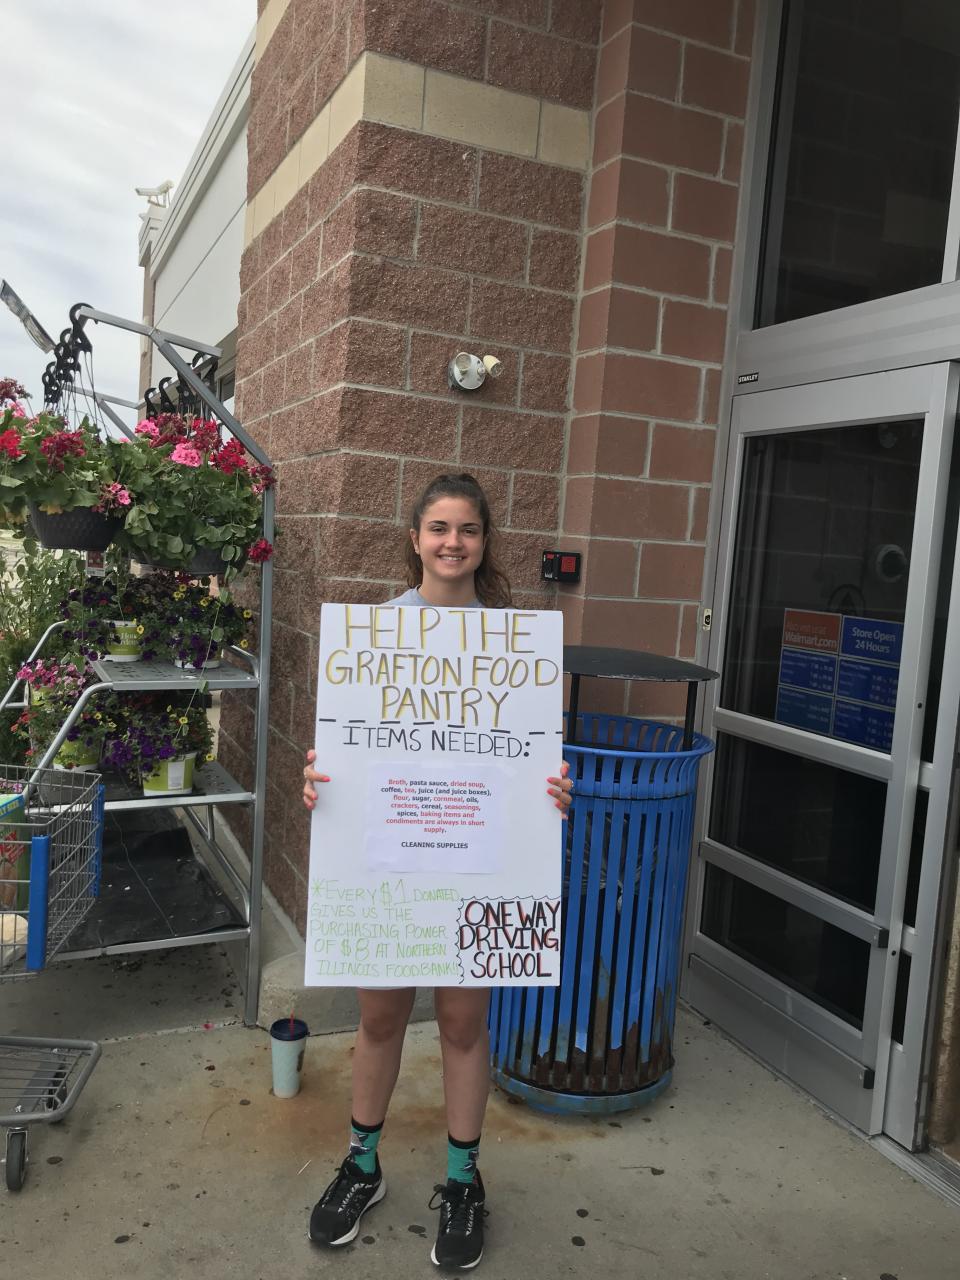 STANLEY
HELP THE
GRAFTON FOOD
PANTRY
ITEMS NEEDED:
Broth, pasta sauce, dried soup,
coffee, tea, juice (and juice boxes),
flour, sugar, cornmeal, oils,
crackers, cereal, seasonings,
spices, baking items and
condiments are always in short
supply.
CLEANING SUPPLIES
*EVERY $1 DONATED
GIVES US THE
PURCHASING POWER
OF $8 AT NORTHERN
ILLINOIS FOODBANK!!
ONE WAY
DRIVING
SCHOOL
Also visit us at
Walmart.com
Store Open
24 Hours